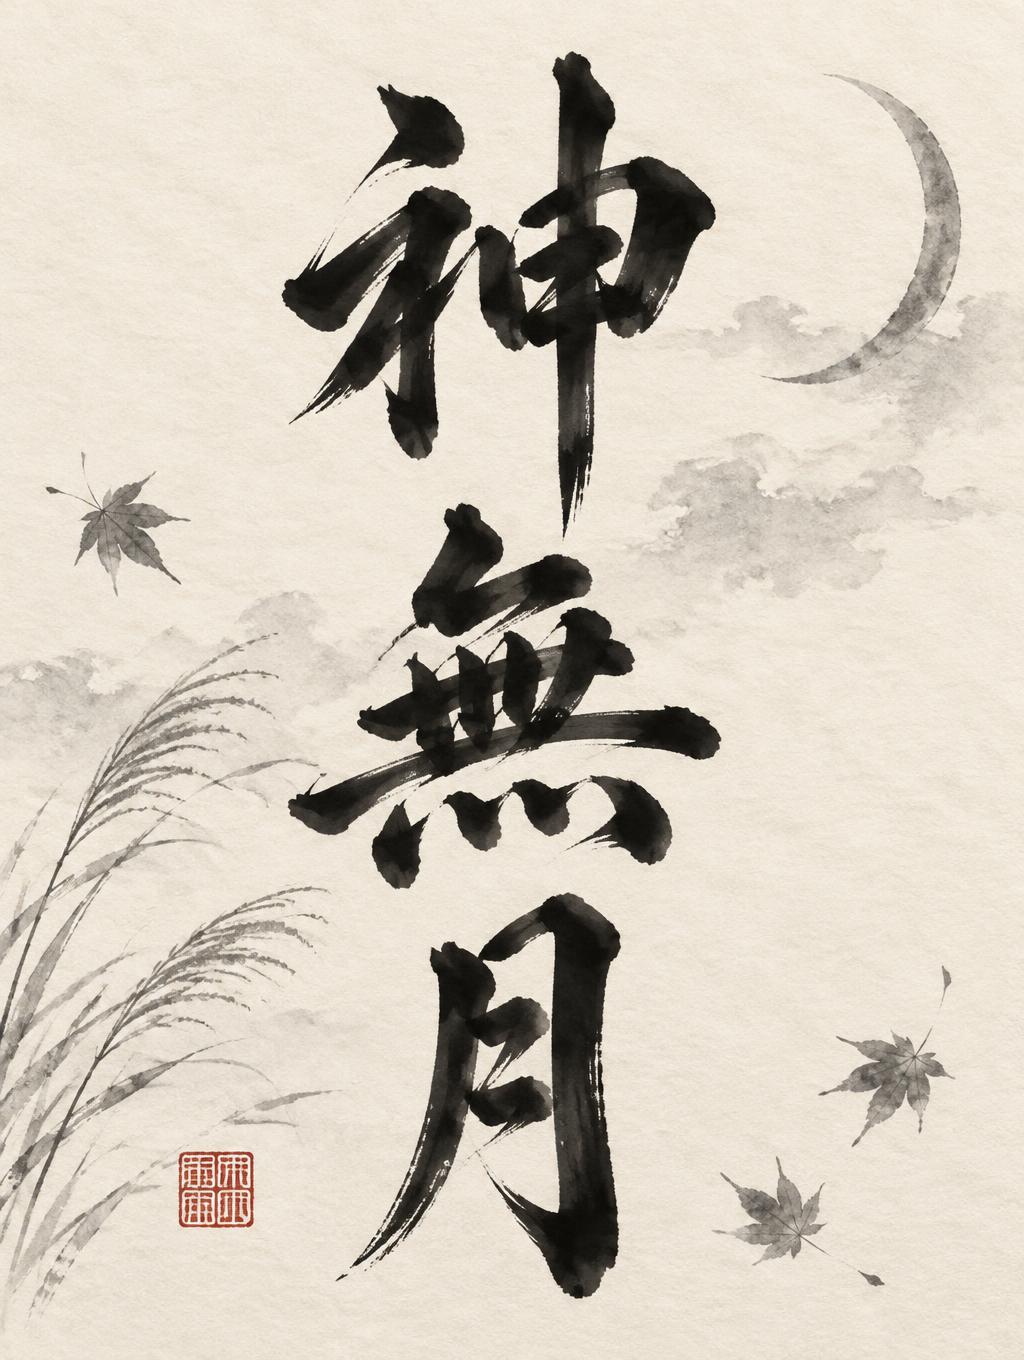 神無月